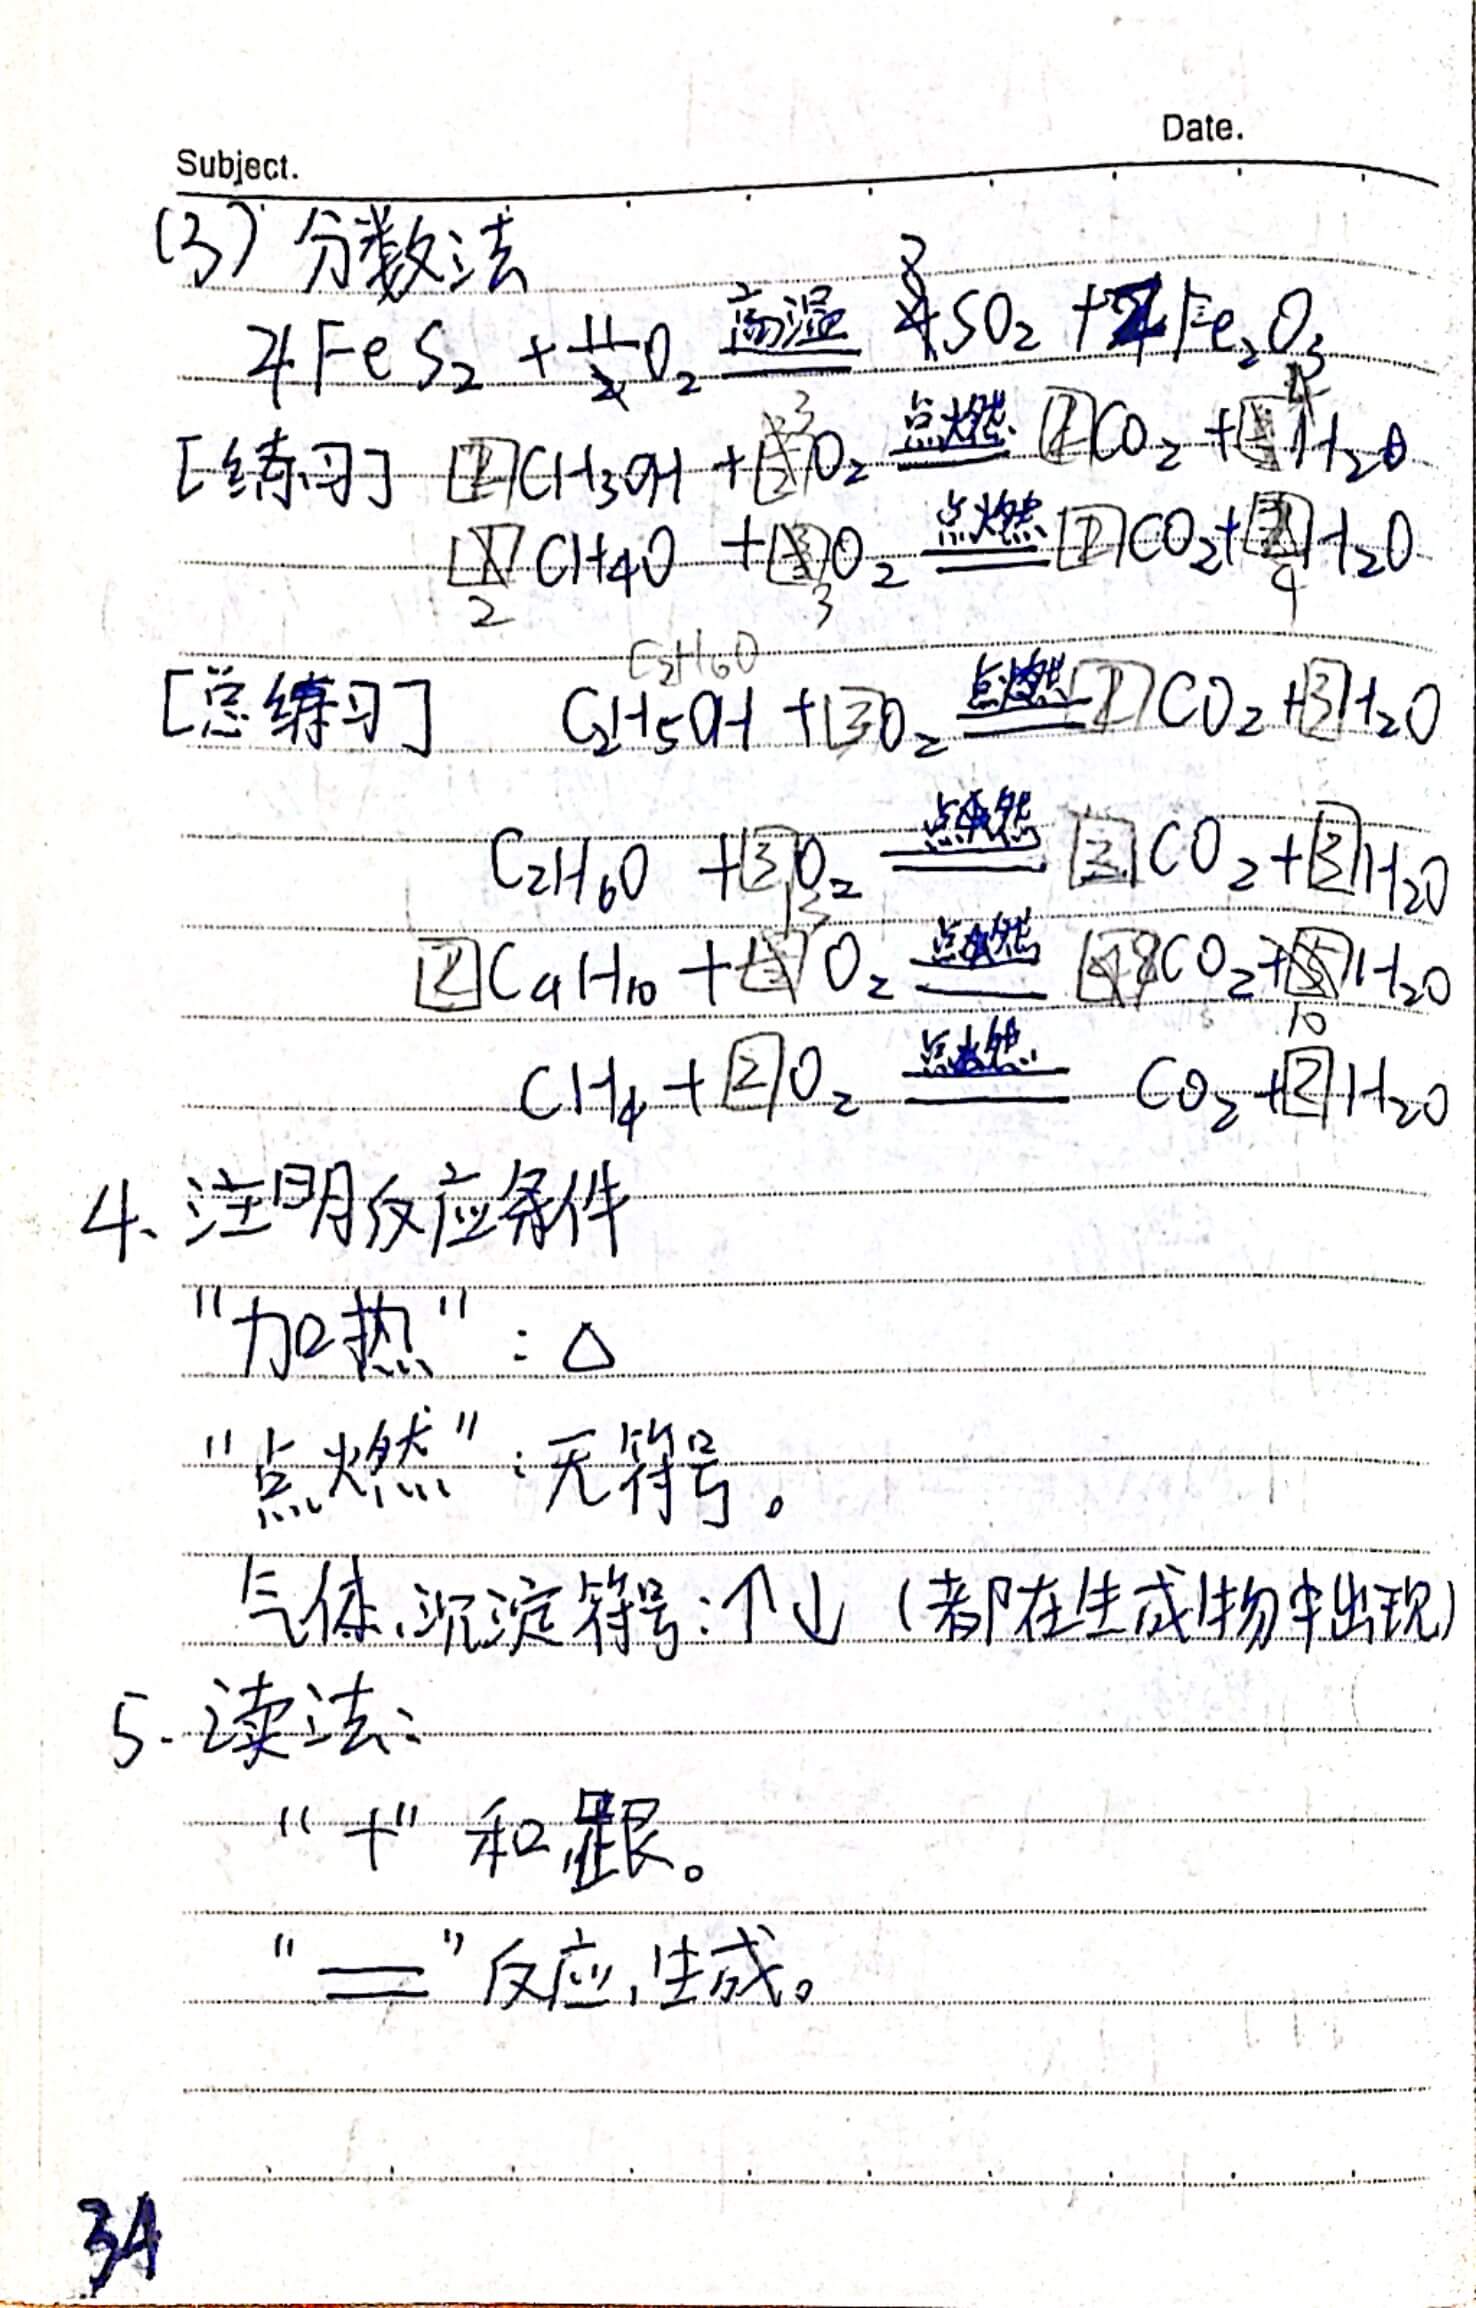 Subject.
Date.
(3) 分数法
4FeS₂ + 11O₂ 高温 8SO₂ + 2Fe₂O₃
[练习] 2CH₃OH + 3O₂ 点燃 2CO₂ + 4H₂O
2CH₄O + 3O₂ 点燃 2CO₂ + 4H₂O
C₂H₆O
[总练习] C₂H₅OH + 3O₂ 点燃 2CO₂ + 3H₂O
C₂H₆O + 3O₂ 点燃 2CO₂ + 3H₂O
2C₄H₁₀ + 13O₂ 点燃 8CO₂ + 10H₂O
CH₄ + 2O₂ 点燃 CO₂ + 2H₂O
4、注明反应条件
"加热":△
"点燃":无符号。
气体、沉淀符号:↑↓(都在生成物中出现)
5.读法:
"+" 和,跟。
"=" 反应,生成。
34